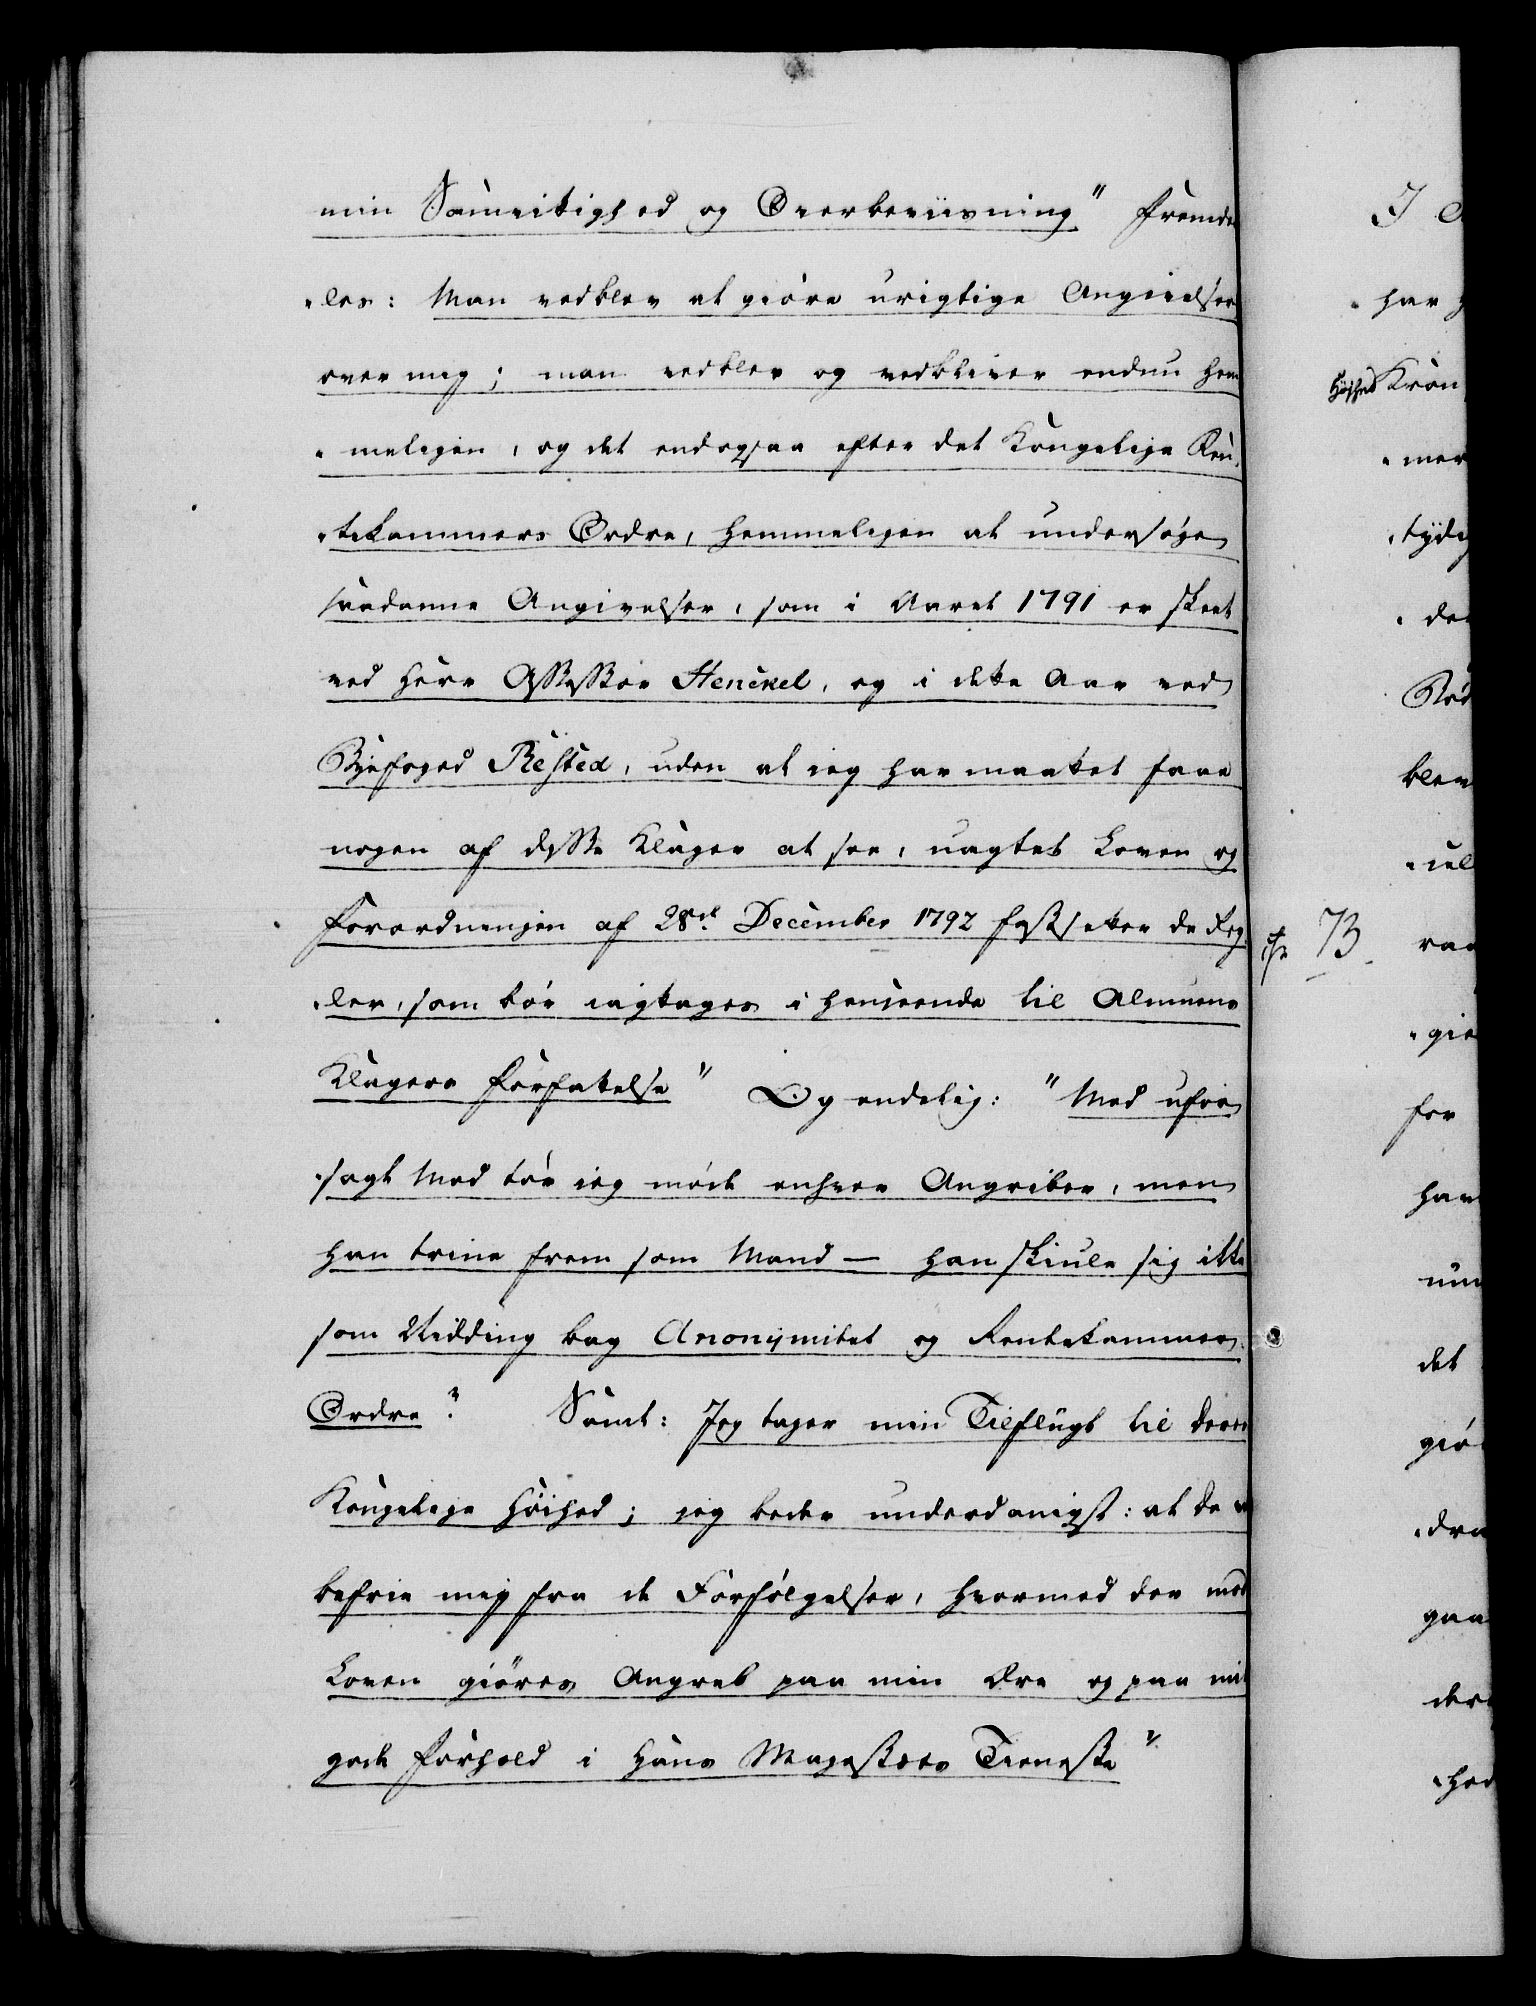 min Samvittighed og Overbeviisning" Fremde
„les: Man vedblev at giøre urigtige Angivelser
over mig; man vedblev og vedbliver endnu hem
„meligen, og det endogsaa efter det Kongelige Ren„
„tekammers Ordre, hemmeligen at undersøge
saadanne Angivelser, som i Aaret 1791 er skeet
ved Herr Assessor Henckel, og i dette Aar ved
Byefoged Rested, uden at jeg har maattet faae
nogen af disse Klager at see, uagtet Loven og
Forordningen af 28de December 1792 fastsetter de Reg„
„ler, som bør iagttages i henseende til Almuens
Klagers Forfattelse" Og endelig: "Med ufor
„sagt Mod tør jeg møde enhver Angriber, men
han trine frem som Mand — han skiule sig ikke
som Nidding bag Anonymitet og Rentekammer„
Ordre". Samt: Jeg tager min Tilflugt til Deres
Kongelige Høihed; jeg beder underdanigst: at De
befrie mig fra de Forfølgelser, hvormed der mod
Loven giøres Angreb paa min Ære og paa mit
gode Forhold i Hans Majestæts Tieneste"
har
Høihed Kron
„mer
„tydi
73
for
det
gaa